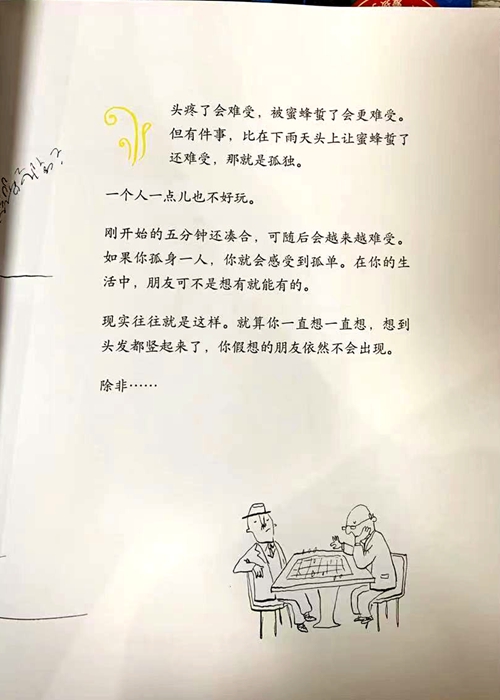 头疼了会难受，被蜜蜂蜇了会更难受。
但有件事，比在下雨天头上让蜜蜂蜇了
还难受，那就是孤独。
一个人一点儿也不好玩。
刚开始的五分钟还凑合，可随后会越来越难受。
如果你孤身一人，你就会感受到孤单。在你的生
活中，朋友可不是想有就能有的。
现实往往就是这样。就算你一直想一直想，想到
头发都竖起来了，你假想的朋友依然不会出现。
除非……